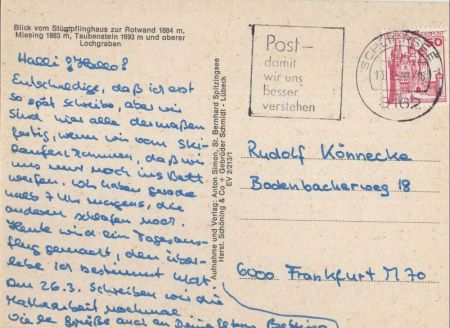 Blick vom Stümpflinghaus zur Rotwand 1884 m,
Miesing 1883 m, Taubenstein 1693 m und oberer
Lochgraben
Halli Hallo!
Entschuldige, daß ich erst
so spät schreibe, aber wir
sind hier alle dermaßen
fertig, wenn wir vom Ski-
laufen kommen, daß wir
uns nur noch ins Bett
werfen. Wir haben gerade
halb 7 Uhr morgens, die
anderen schlafen noch.
Heute wird ein Tagesaus-
flug gemacht, den über-
lebe ich bestimmt nicht.
Am 26.3. schreiben wir die
Mathearbeit nochmal.
Viele Grüße auch an Deine Eltern Bettina
Aufnahme und Verlag: Anton Simon, St. Bernhard Spitzingsee
Herst. Schöning & Co + Gebrüder Schmidt - Lübeck
EV 2/213/1
Post -
damit
wir uns
besser
verstehen
SCHLIERSEE
8162
Rudolf Könnecke
Bodenbacherweg 18
6000 Frankfurt M 70